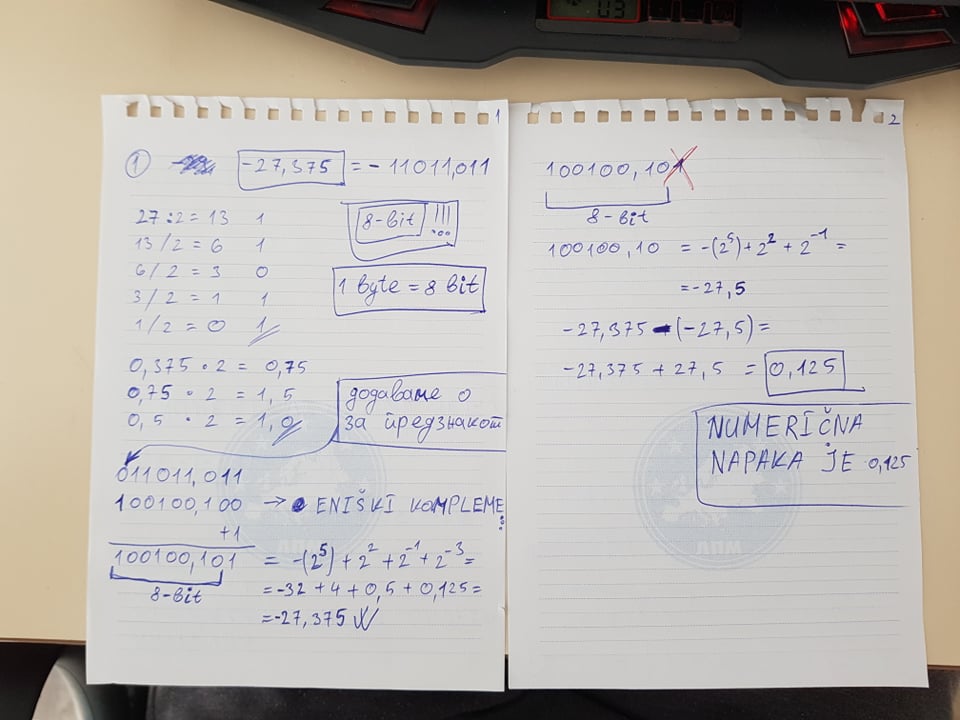 03
1
① -27,375 = - 11011,011
27 : 2 = 13 1
13 / 2 = 6 1
6 / 2 = 3 0
3 / 2 = 1 1
1 / 2 = 0 1
8-bit !!!
1 byte = 8 bit
0,375 · 2 = 0,75
0,75 · 2 = 1,5
0,5 · 2 = 1,0
додаваме 0
за предзнакот
011011,011
100100,100 → ENIŠKI KOMPLEME
+1
100100,101 = -(2⁵) + 2² + 2⁻¹ + 2⁻³ =
8-bit
= -32 + 4 + 0,5 + 0,125 =
= -27,375
2
100100,101
8-bit
100100,10 = -(2⁵) + 2² + 2⁻¹ =
= -27,5
-27,375 - (-27,5) =
-27,375 + 27,5 = 0,125
NUMERIČNA
NAPAKA JE 0,125
ЛПМ
ЛПМ